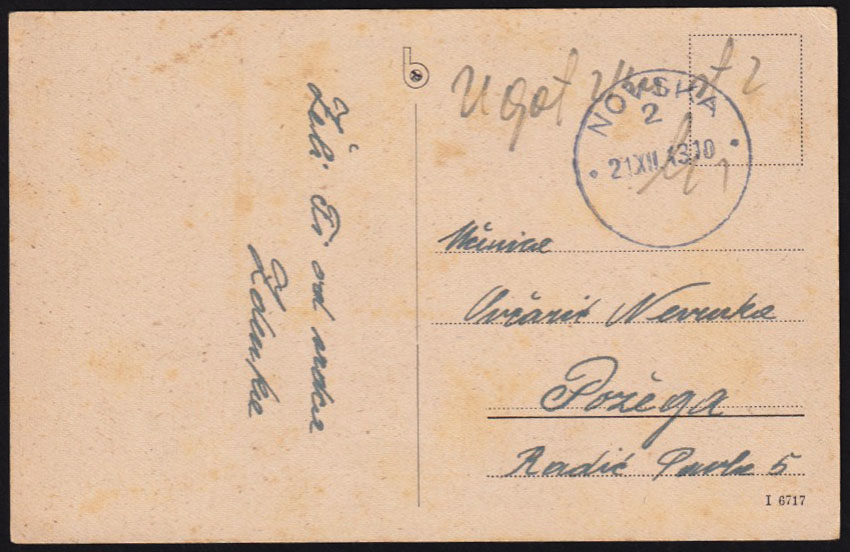 Želi Ti od srca
Zdenka
U got
NOVSKA
2
21 XII 43 10
Učenica
Ovčarić Nevenka
Požega
Radić Pavla 5
I 6717